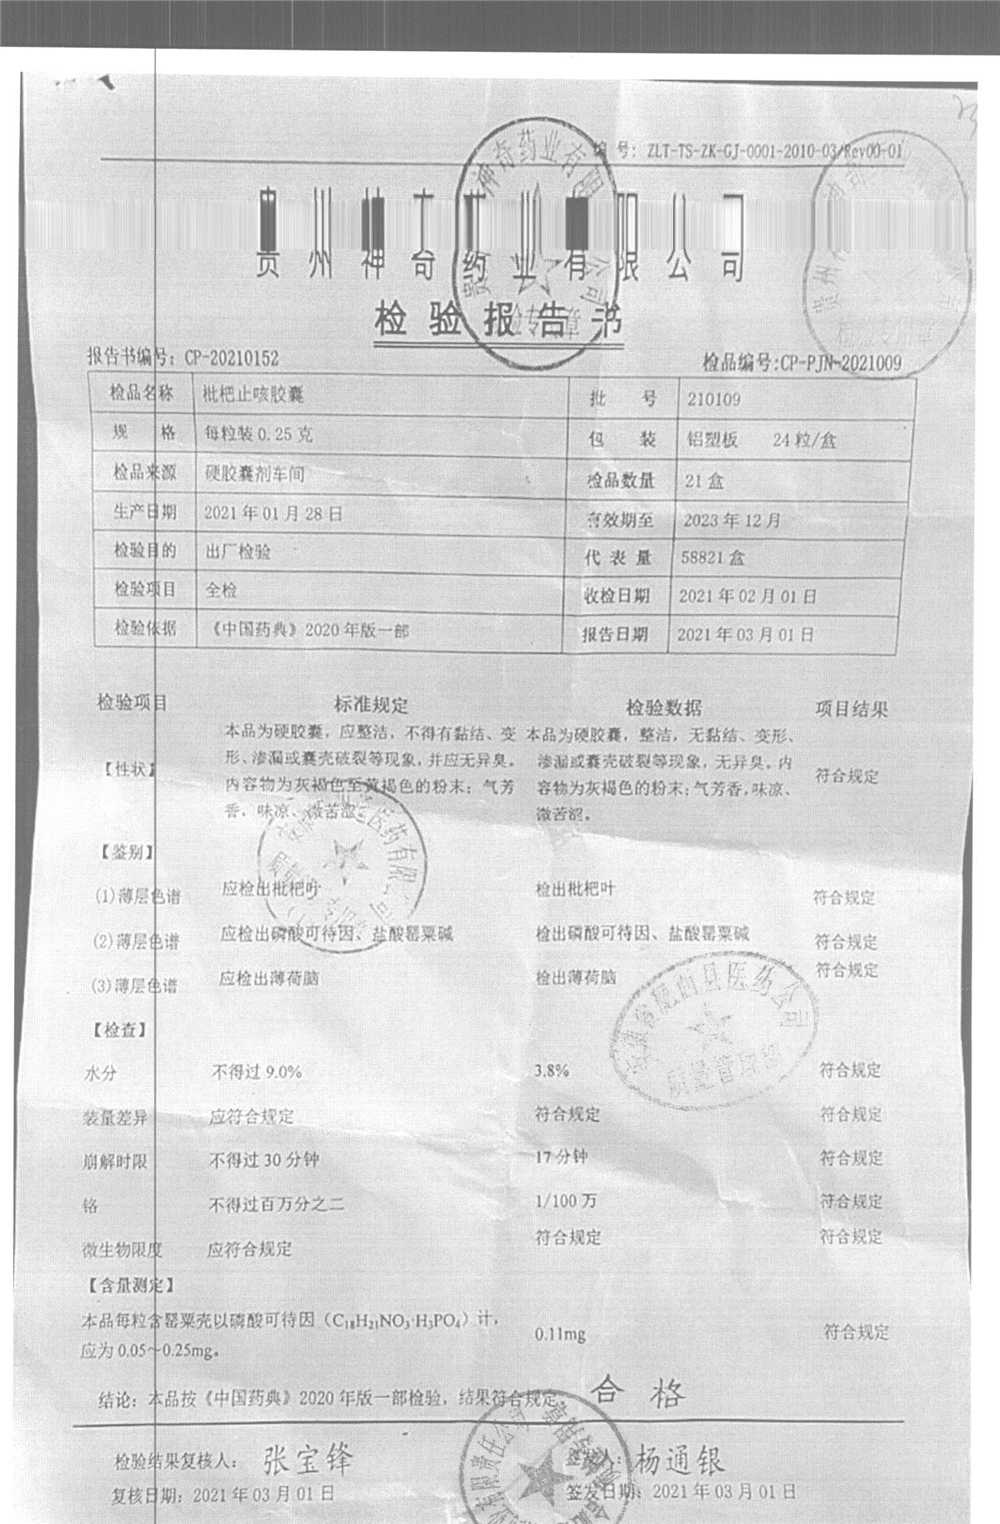 编 号: ZLT-TS-ZK-GJ-0001-2010-03/Rev00-01
贵州神奇药业有限公司
检验报告书
报告书编号: CP-20210152 检品编号:CP-PJN-2021009
检品名称 枇杷止咳胶囊 批 号 210109
规 格 每粒装0.25克 包 装 铝塑板 24粒/盒
检品来源 硬胶囊剂车间 检品数量 21盒
生产日期 2021年01月28日 有效期至 2023年12月
检验目的 出厂检验 代 表 量 58821盒
检验项目 全检 收检日期 2021年02月01日
检验依据 《中国药典》2020年版一部 报告日期 2021年03月01日
检验项目 标准规定 检验数据 项目结果
【性状】 本品为硬胶囊，应整洁，不得有黏结、变 本品为硬胶囊，整洁，无黏结、变形、
形、渗漏或囊壳破裂等现象，并应无异臭。 渗漏或囊壳破裂等现象，无异臭。内 符合规定
内容物为灰褐色至黄褐色的粉末；气芳 容物为灰褐色的粉末；气芳香，味凉、
香，味凉、微苦涩。 微苦涩。
【鉴别】
(1)薄层色谱 应检出枇杷叶 检出枇杷叶 符合规定
(2)薄层色谱 应检出磷酸可待因、盐酸罂粟碱 检出磷酸可待因、盐酸罂粟碱 符合规定
(3)薄层色谱 应检出薄荷脑 检出薄荷脑 符合规定
【检查】
水分 不得过9.0% 3.8% 符合规定
装量差异 应符合规定 符合规定 符合规定
崩解时限 不得过30分钟 17分钟 符合规定
铬 不得过百万分之二 1/100万 符合规定
微生物限度 应符合规定 符合规定 符合规定
【含量测定】
本品每粒含罂粟壳以磷酸可待因（C₁₈H₂₁NO₃·H₃PO₄）计，
应为0.05~0.25mg。 0.11mg 符合规定
结论：本品按《中国药典》2020年版一部检验，结果符合规定。 合格
检验结果复核人： 张宝锋 签发人： 杨通银
复核日期：2021年03月01日 签发日期：2021年03月01日